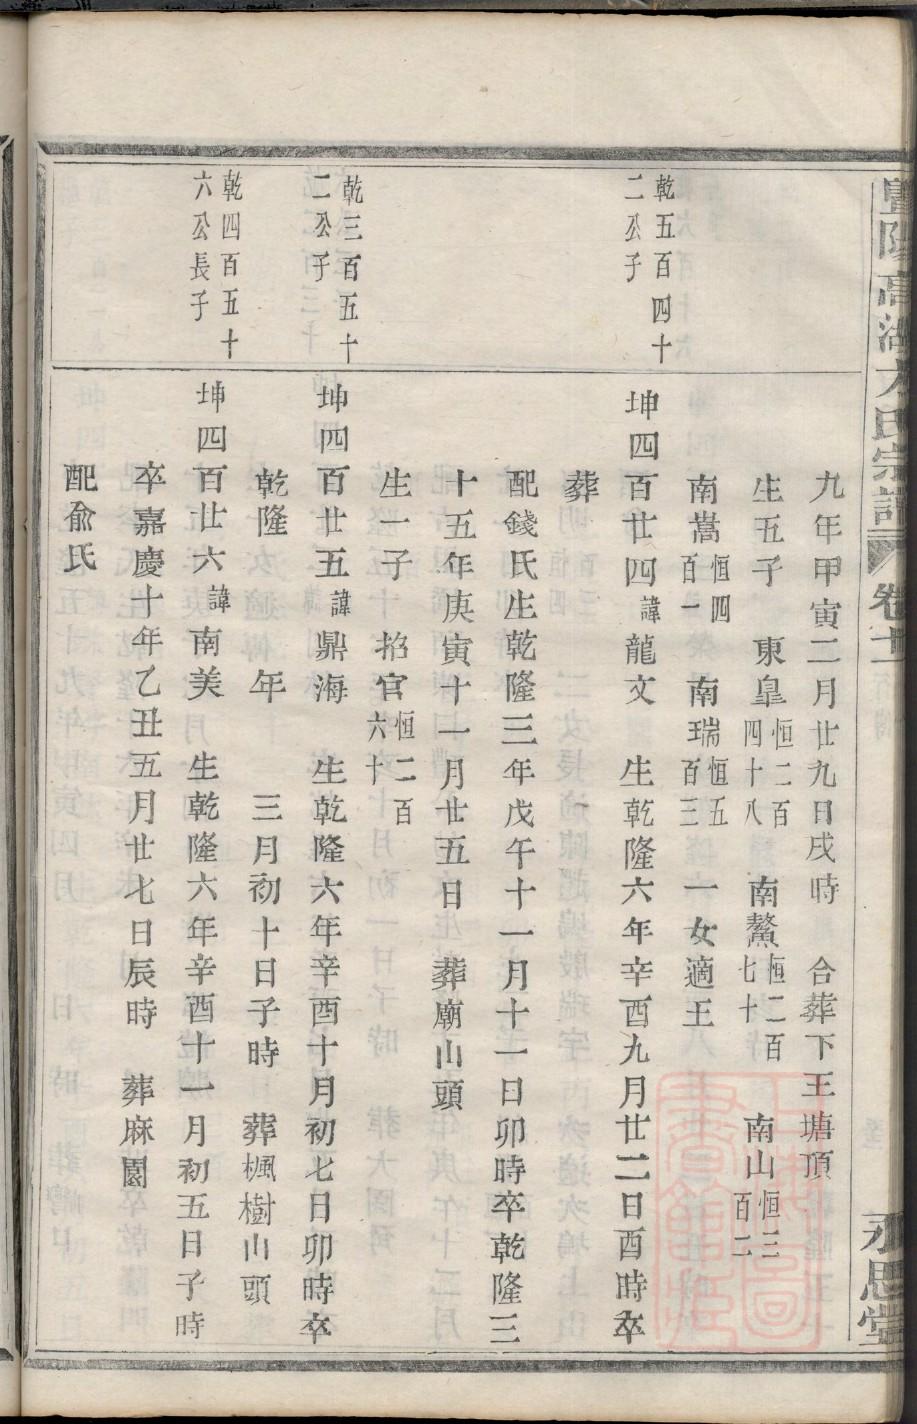 暨陽高湖方氏宗譜 卷十二 永思堂
九年甲寅二月廿九日戌時 合葬下王塘頂
生五子 東皐恒二百四十八 南鰲恒二百七十 南山恒三百二
南嵩恒四百一 南瑞恒五百三 一女適王
乾五百四十二公子
坤四百廿四諱龍文 生乾隆六年辛酉九月廿二日酉時卒
葬
配錢氏生乾隆三年戊午十一月十一日卯時卒乾隆三
十五年庚寅十一月廿五日 葬廟山頭
生一子 招官恒二百六十
乾三百五十二公子
坤四百廿五諱鼎海 生乾隆六年辛酉十月初七日卯時卒
乾隆 年 三月初十日子時 葬楓樹山頭
乾四百五十六公長子
坤四百廿六諱南美 生乾隆六年辛酉十一月初五日子時
卒嘉慶十年乙丑五月廿七日辰時 葬麻園
配俞氏